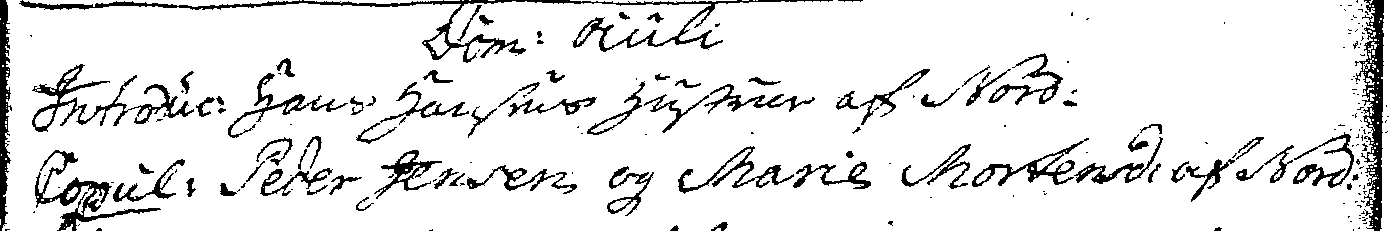 Dom: Oculi
Introduc: Hans Hansens Hustrue af Nord:
Copul: Peder Jensen og Marie Mortensd: af Nord: